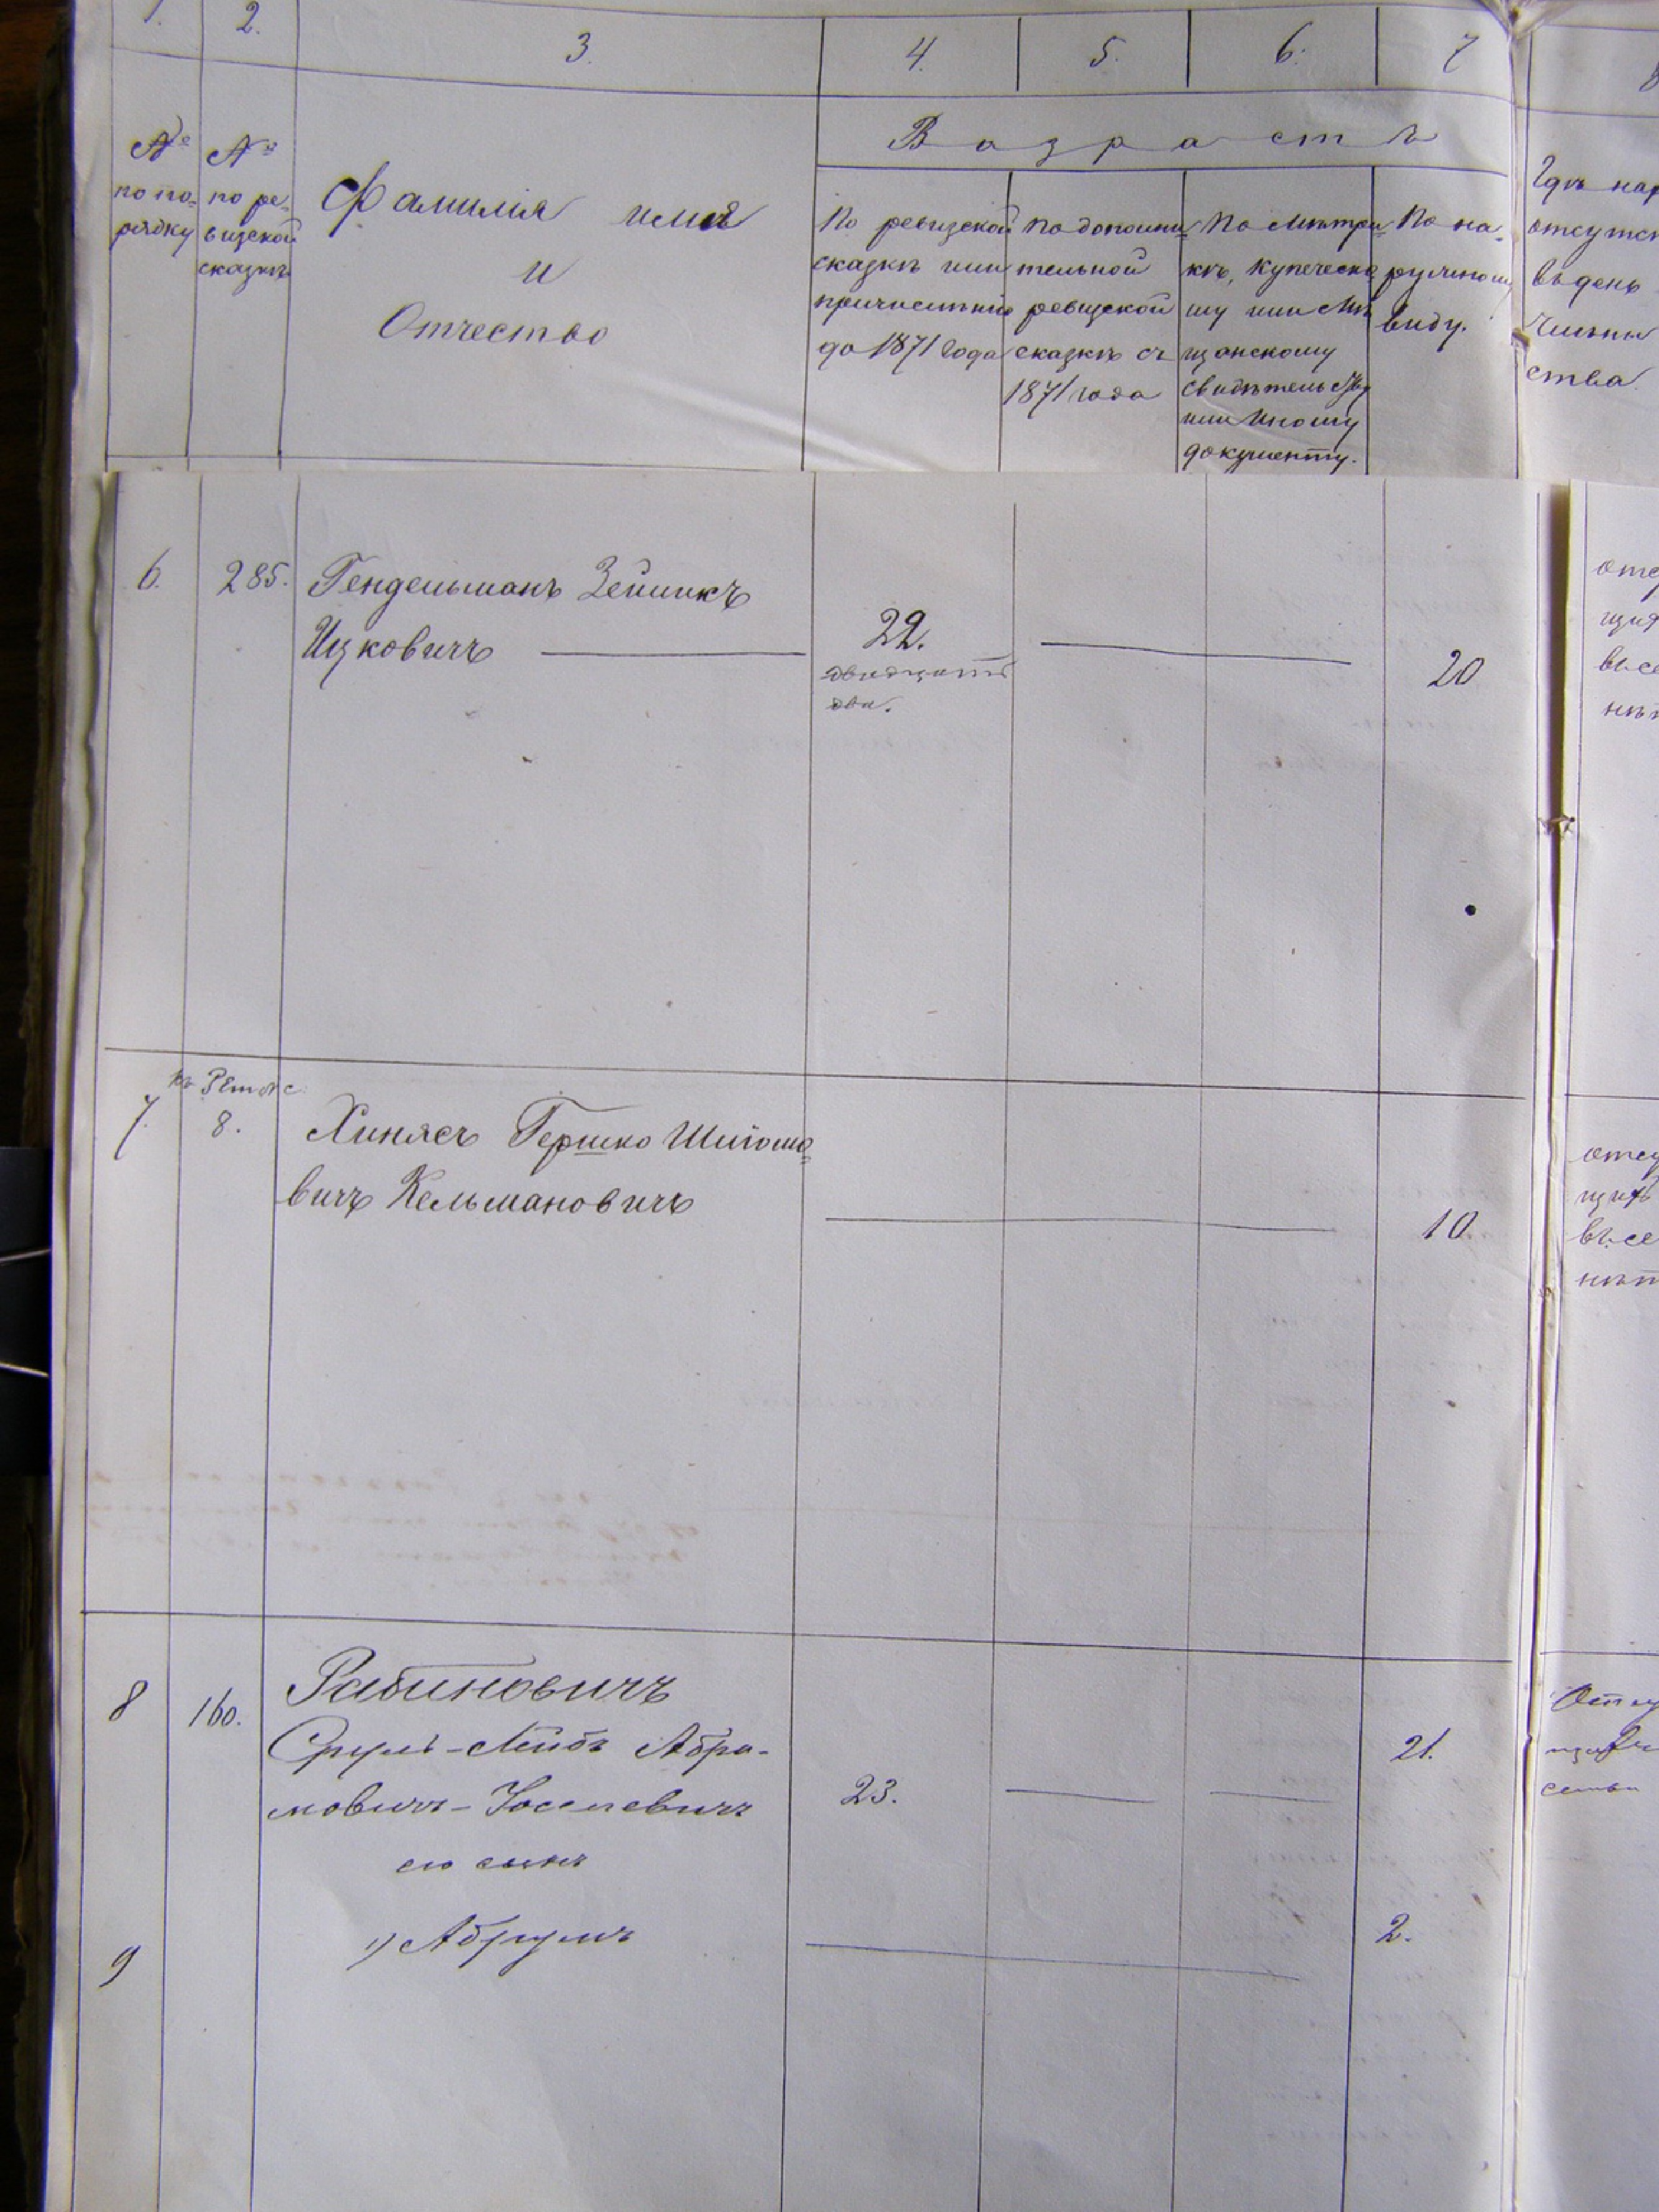 1. 2. 3. 4. 5. 6. 7
Возрастъ
№ по по-
рядку
№ по ре-
визской
сказкѣ
Фамилія имя
и
Отчество
По ревизской
сказкѣ или
причисленію
до 1871 года
по дополни-
тельной
ревизской
сказкѣ съ
1871 года
По Метри-
кѣ, купеческо
му или Мѣ
щанскому
свидѣтельству
или иному
документу.
По на-
ружному
виду.
Гдѣ на
отсутст
въ день
ства.
6. 285. Гендельманъ Зейликъ
Ицковичъ
22.
двадцать
два.
20
7. 8. Хинясъ Гершко Шиюмо-
вичъ Кельмановичъ
10
8 160. Рабиновичъ
Сруль-Лейбъ Абра-
мовичъ-Іоселевичъ
его сынъ
23. 21.
9 1) Абрумъ 2.